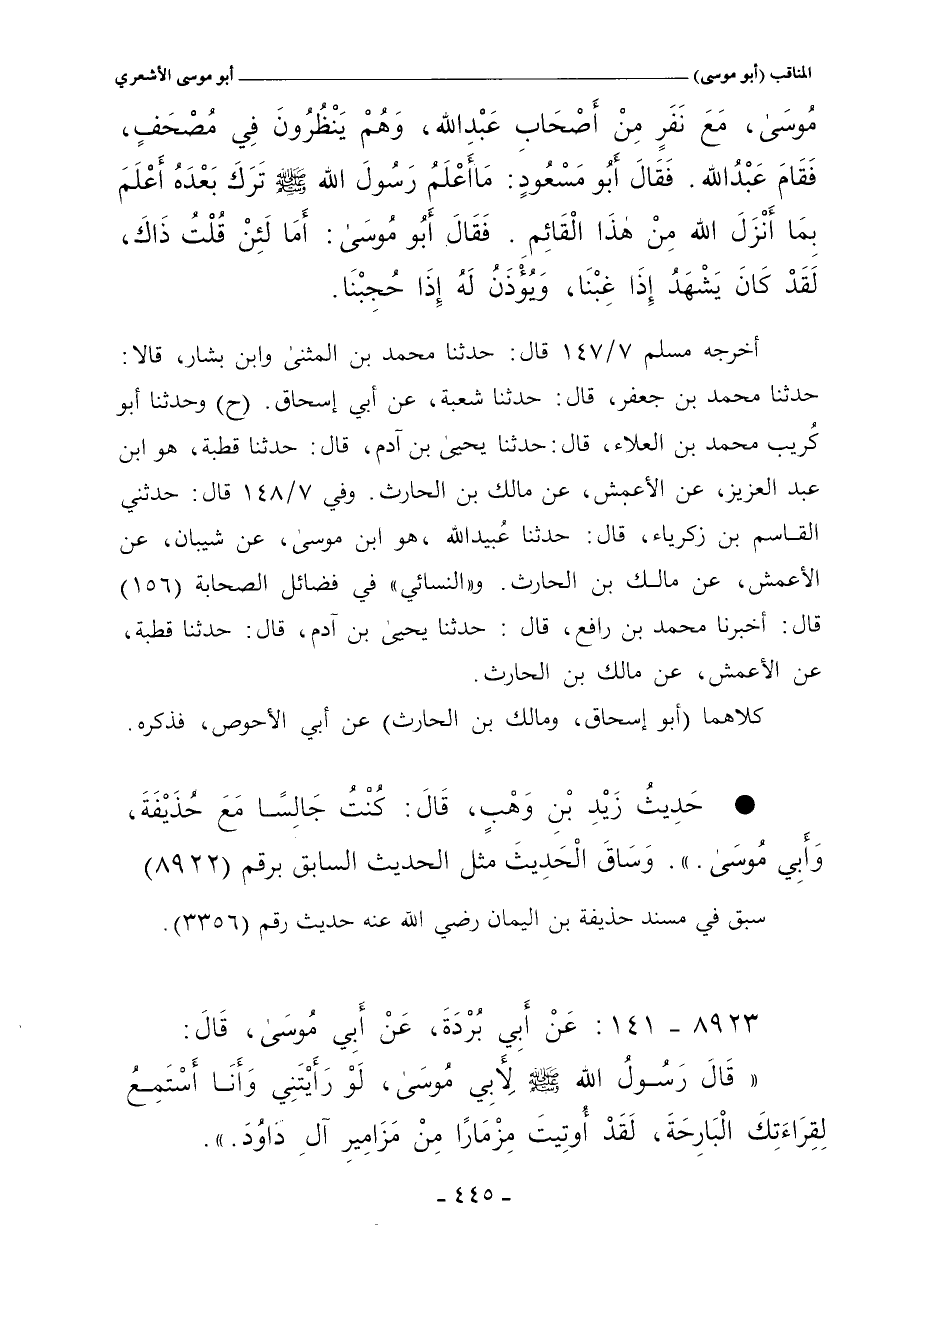 المناقب (أبو موسى) ــــــــــــــــــــــــ أبو موسى الأشعري
مُوسَىٰ، مَعَ نَفَرٍ مِنْ أَصْحَابِ عَبْدِالله، وَهُمْ يَنْظُرُونَ فِي مُصْحَفٍ،
فَقَامَ عَبْدُالله. فَقَالَ أَبُو مَسْعُودٍ: مَاأَعْلَمُ رَسُولَ الله ﷺ تَرَكَ بَعْدَهُ أَعْلَمَ
بِمَا أَنْزَلَ الله مِنْ هٰذَا الْقَائِمِ . فَقَالَ أَبُو مُوسَىٰ: أَمَا لَئِنْ قُلْتَ ذَاكَ،
لَقَدْ كَانَ يَشْهَدُ إِذَا غِبْنَا، وَيُؤْذَنُ لَهُ إِذَا حُجِبْنَا.
أخرجه مسلم ١٤٧/٧ قال: حدثنا محمد بن المثنىٰ وابن بشار، قالا:
حدثنا محمد بن جعفر، قال: حدثنا شعبة، عن أبي إسحاق. (ح) وحدثنا أبو
كُريب محمد بن العلاء، قال:حدثنا يحيىٰ بن آدم، قال: حدثنا قطبة، هو ابن
عبد العزيز، عن الأعمش، عن مالك بن الحارث. وفي ١٤٨/٧ قال: حدثني
القاسم بن زكرياء، قال: حدثنا عُبيدالله ،هو ابن موسىٰ، عن شيبان، عن
الأعمش، عن مالك بن الحارث. و«النسائي» في فضائل الصحابة (١٥٦)
قال: أخبرنا محمد بن رافع، قال : حدثنا يحيىٰ بن آدم، قال: حدثنا قطبة،
عن الأعمش، عن مالك بن الحارث.
كلاهما (أبو إسحاق، ومالك بن الحارث) عن أبي الأحوص، فذكره.
● حَدِيثُ زَيْدِ بْنِ وَهْبٍ، قَالَ: كُنْتُ جَالِسًا مَعَ حُذَيْفَةَ،
وَأَبِي مُوسَىٰ.». وَسَاقَ الْحَدِيثَ مثل الحديث السابق برقم (٨٩٢٢)
سبق في مسند حذيفة بن اليمان رضي الله عنه حديث رقم (٣٣٥٦).
٨٩٢٣ - ١٤١: عَنْ أَبِي بُرْدَةَ، عَنْ أَبِي مُوسَىٰ، قَالَ:
« قَالَ رَسُولُ الله ﷺ لِأَبِي مُوسَىٰ، لَوْ رَأَيْتَنِي وَأَنَا أَسْتَمِعُ
لِقِرَاءَتِكَ الْبَارِحَةَ، لَقَدْ أُوتِيتَ مِزْمَارًا مِنْ مَزَامِيرِ آلِ دَاوُدَ.».
- ٤٤٥ -